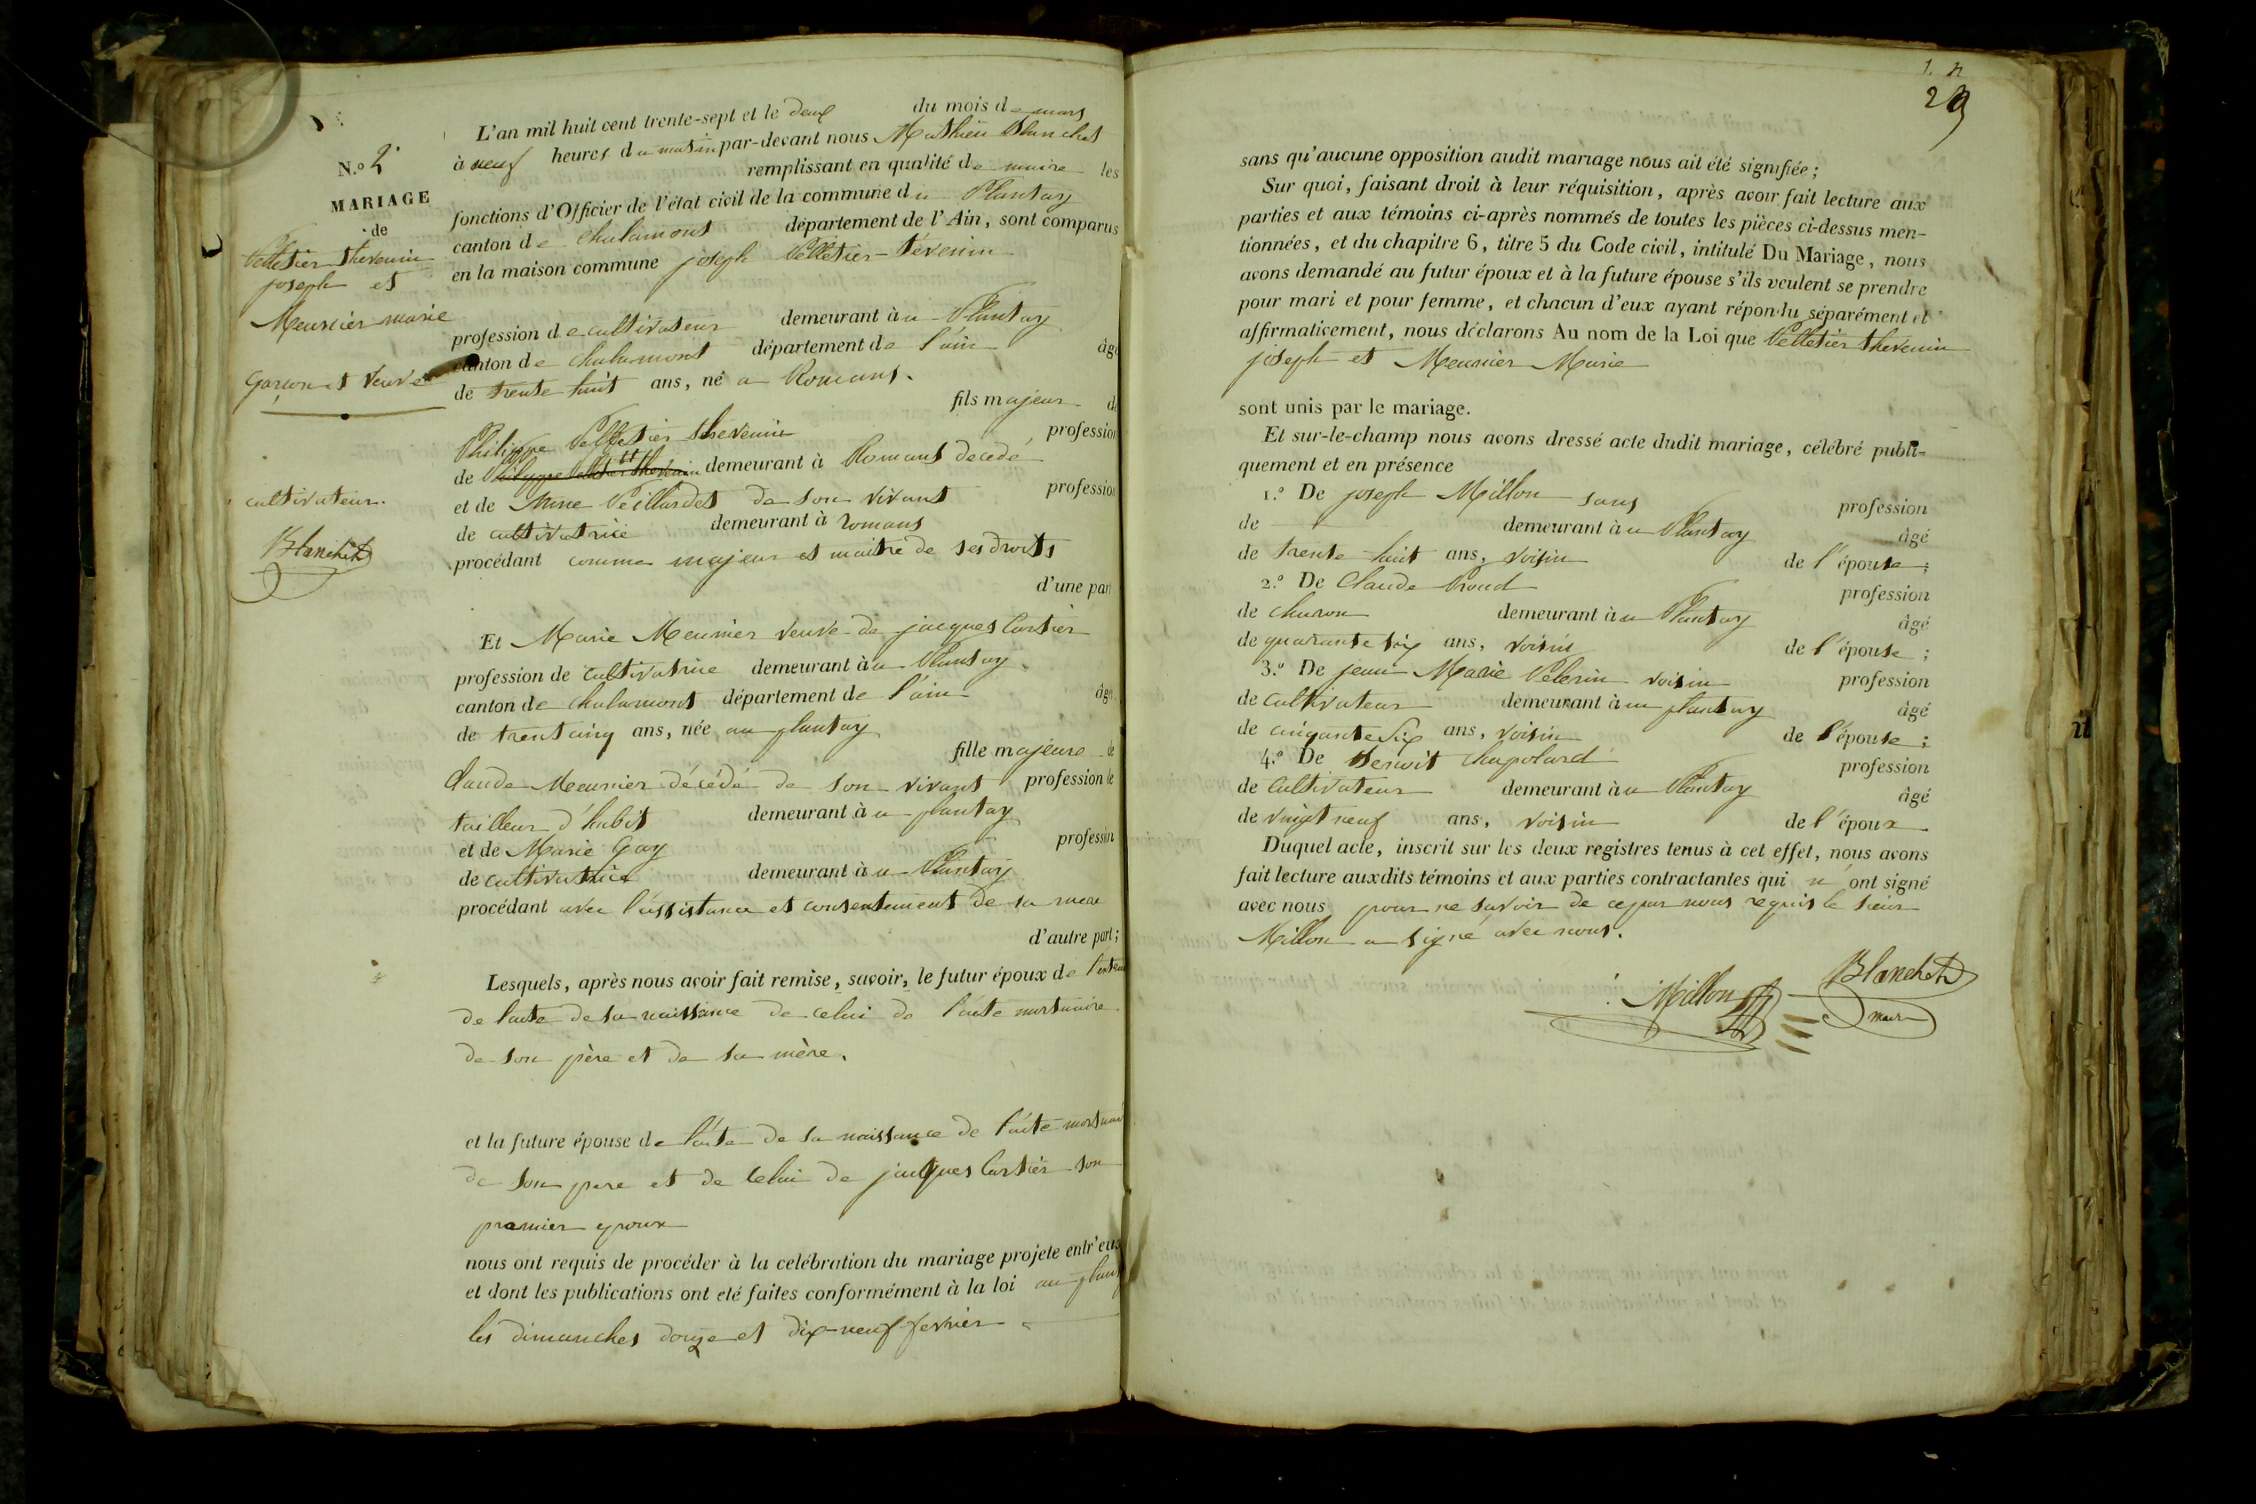 N.º 2
MARIAGE
de
Pelletier thevenin
joseph et
Meunier marie
garçon et veuve
cultivateur.
Blanchet
L'an mil huit cent trente-sept et le deux du mois de mars
à neuf heures du matin par-devant nous Mathieu Blanchet
remplissant en qualité de maire les
fonctions d'Officier de l'état civil de la commune du Plantay
canton de chalamont département de l'Ain, sont comparus
en la maison commune joseph Pelletier-Tévenin
profession de cultivateur demeurant à u Plantay
canton de chalamont département de l'ain âgé
de trente huit ans, né a Romans.
fils majeur de
Philippe Pelletier thevenin profession
de demeurant à Romans décédé
et de de son vivant profession
de cultivatrice demeurant à romans
procédant comme majeur et maitre de ses droits
d'une part
Et Marie Meunier veuve de jacques Cartier
profession de cultivatrice demeurant à u Plantay
canton de chalamont département de l'ain âgé
de trentcinq ans, née au plantay
fille majeure de
Claude Meunier décédé de son vivant profession de
tailleur d'habit demeurant à u plantay
et de Marie Gay profession
de cultivatrice demeurant à u Plantay
procédant avec l'assistance et consentement de sa mere
d'autre part;
Lesquels, après nous avoir fait remise, savoir, le futur époux de
de l'acte de sa naissance de celui de l'acte mortuaire
de son père et de sa mère.
et la future épouse de l'acte de sa naissance de l'acte mortuaire
de son pere et de celui de jacques Cartier son
premier epoux
nous ont requis de procéder à la celébration du mariage projeté entr'eux
et dont les publications ont été faites conformément à la loi au
les dimanches douze et dix-neuf fevrier
29
sans qu'aucune opposition audit mariage nous ait été signifiée;
Sur quoi, faisant droit à leur réquisition, après avoir fait lecture aux
parties et aux témoins ci-après nommés de toutes les pièces ci-dessus men-
tionnées, et du chapitre 6, titre 5 du Code civil, intitulé Du Mariage, nous
avons demandé au futur époux et à la future épouse s'ils veulent se prendre
pour mari et pour femme, et chacun d'eux ayant répondu séparément et
affirmativement, nous déclarons Au nom de la Loi que Pelletier thevenin
joseph et Meunier Marie
sont unis par le mariage.
Et sur-le-champ nous avons dressé acte dudit mariage, célébré publi-
quement et en présence
1.º De joseph Millon sans profession
de demeurant à u Plantay âgé
de trente-huit ans, voisin de l'épouse;
2.º De Claude profession
de charon demeurant à u Plantay âgé
de quarante six ans, voisin de l'épouse;
3.º De jean Marie Pelerin voisin profession
de cultivateur demeurant à u plantay âgé
de cinquante six ans, voisin de l'épouse;
4.º De Benoit Chapolard profession
de cultivateur demeurant à u Plantay âgé
de vingt neuf ans, voisin de l'époux
Duquel acte, inscrit sur les deux registres tenus à cet effet, nous avons
fait lecture auxdits témoins et aux parties contractantes qui n'ont signé
avec nous pour ne savoir de ce par nous requis le sieur
Millon a signé avec nous.
Millon Blanchet
maire